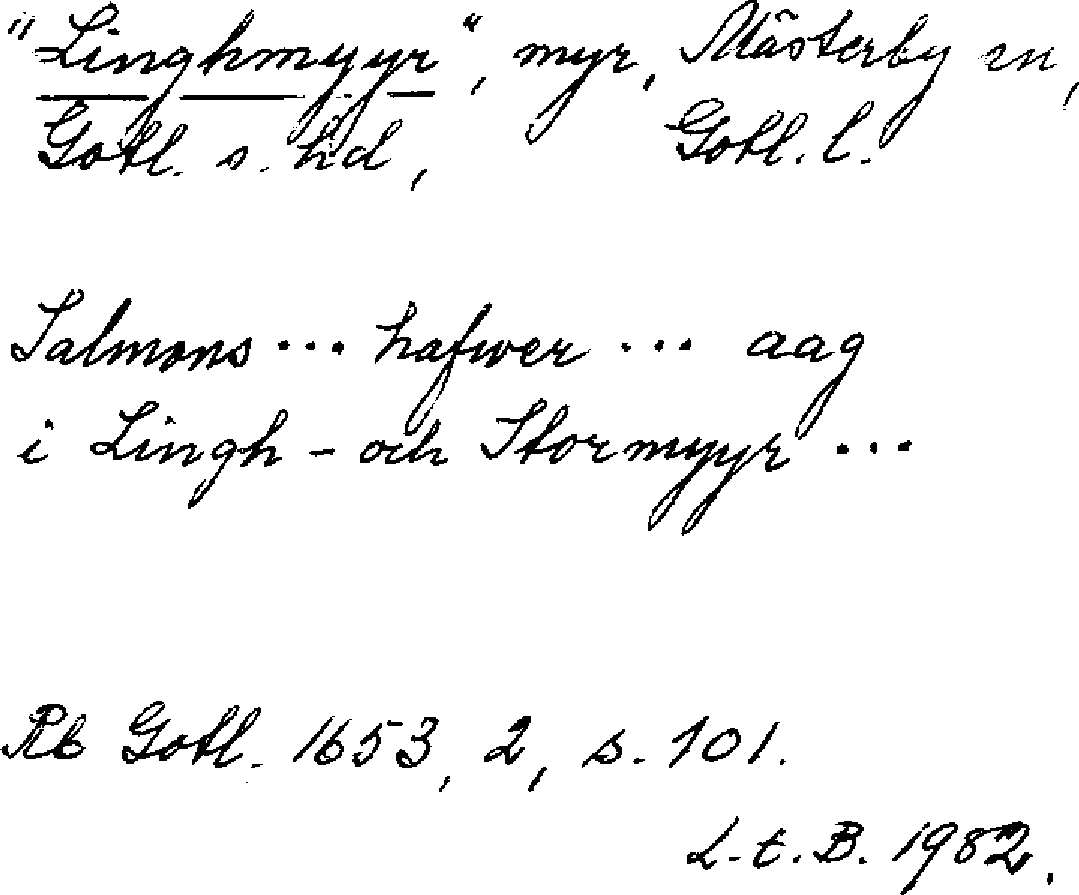 "Linghmyyr", myr, Mästerby sn,
Gotl. s. hd, Gotl. l.
Salmons ... hafwer ... aag
i Lingh - och Stormyyr ...
Rb Gotl. 1653, 2, s. 101.
L.t.B. 1982.